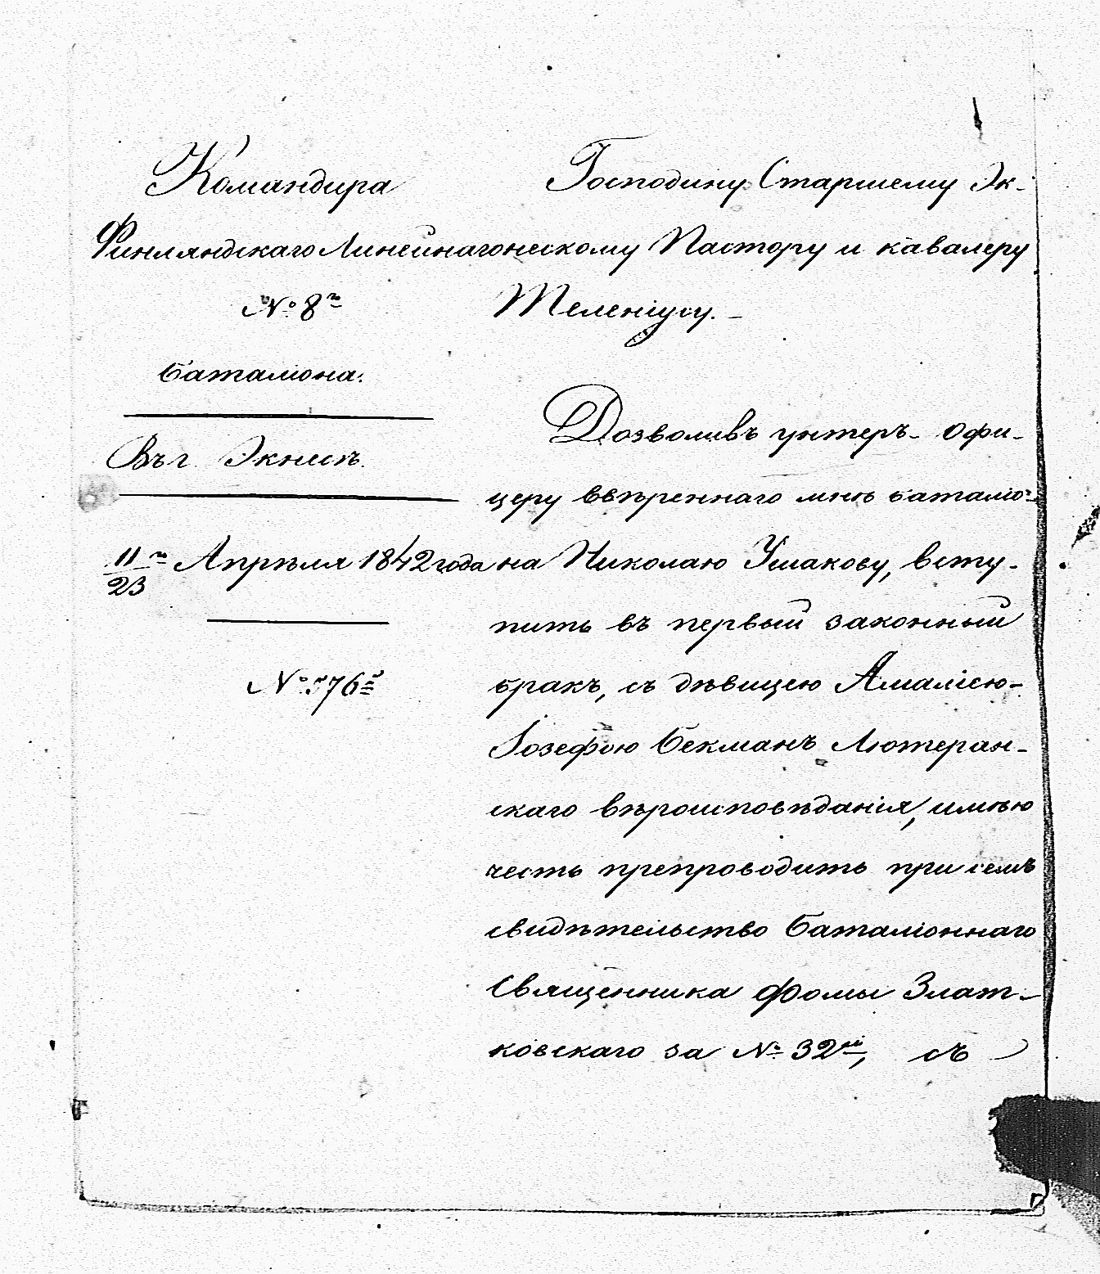 Командира
Финляндскаго Линейнаго
№ 8го
баталіона.
Въ г. Экнисѣ.
11го/23 Апрѣля 1842 года
№ 576й
Господину Старшему Эк-
нескому Пастору и кавалеру
Теленіусу.
Дозволивъ унтеръ-офи-
церу ввѣреннаго мнѣ баталіо-
на Николаю Ушакову, всту-
пить въ первый законный
бракъ, съ дѣвицею Амаліею-
Іозефою Бекманъ Лютеран-
скаго вѣроисповѣданія, имѣю
честь препроводить при семъ
свидѣтельство баталіоннаго
Священника Фомы Злат-
ковскаго за № 32мъ, съ